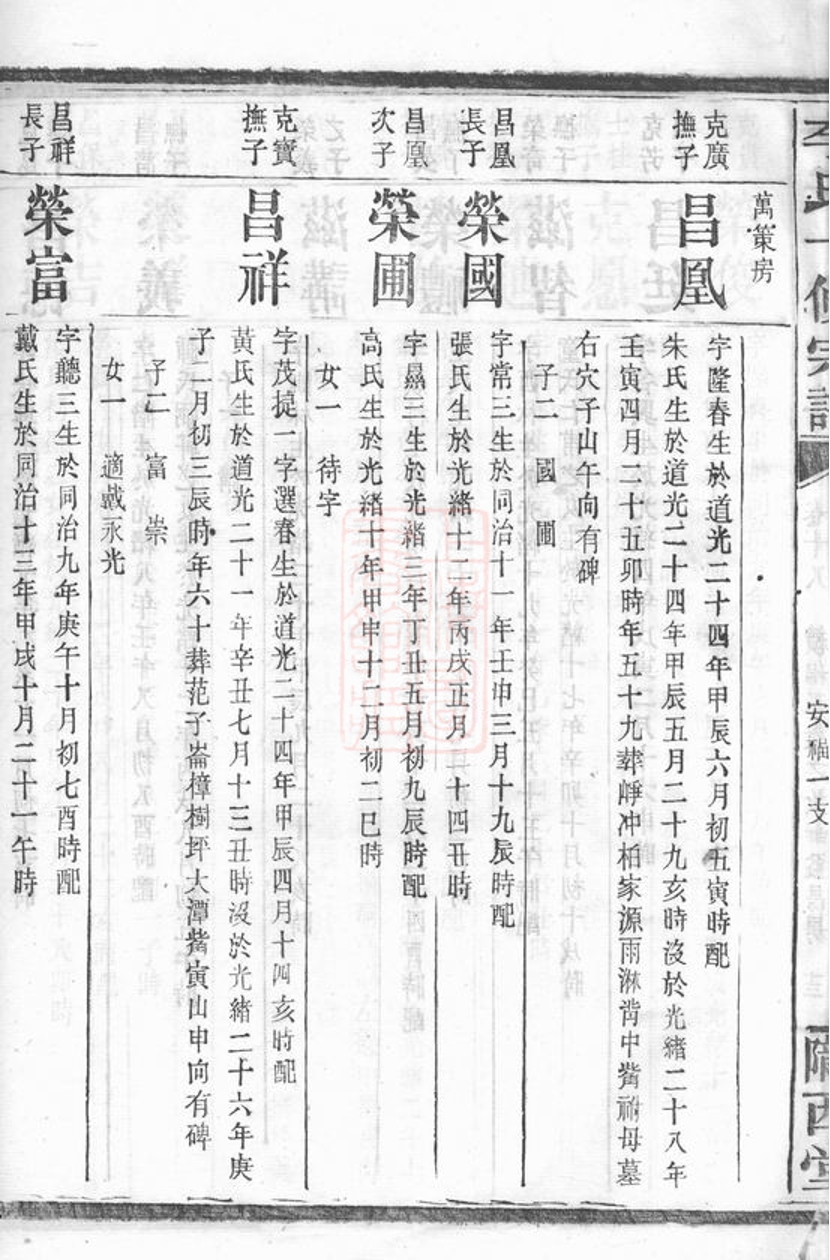 氏十修宗譜
安福一支
隴西堂
萬策房
克廣
撫子
昌凰
字隆春生於道光二十四年甲辰六月初五寅時配
朱氏生於道光二十四年甲辰五月二十九亥時沒於光緒二十八年
壬寅四月二十五卯時年五十九葬崢冲柏家源雨淋塝中觜祔母墓
右穴子山午向有碑
子二　國　圃
昌凰
長子
榮國
字常三生於同治十一年壬申三月十九辰時配
張氏生於光緒十二年丙戌正月二十四丑時
昌凰
次子
榮圃
字晜三生於光緒三年丁丑五月初九辰時配
高氏生於光緒十年甲申十二月初二巳時
女一　待字
克寶
撫子
昌祥
字茂㨗一字選春生於道光二十四年甲辰四月十四亥時配
黃氏生於道光二十一年辛丑七月十三丑時沒於光緒二十六年庚
子二月初三辰時年六十葬范子崙樟樹坪大潭觜寅山申向有碑
子二　富　崇
女一　適戴永光
昌祥
長子
榮富
字聽三生於同治九年庚午十月初七酉時配
戴氏生於同治十三年甲戌十月二十一午時